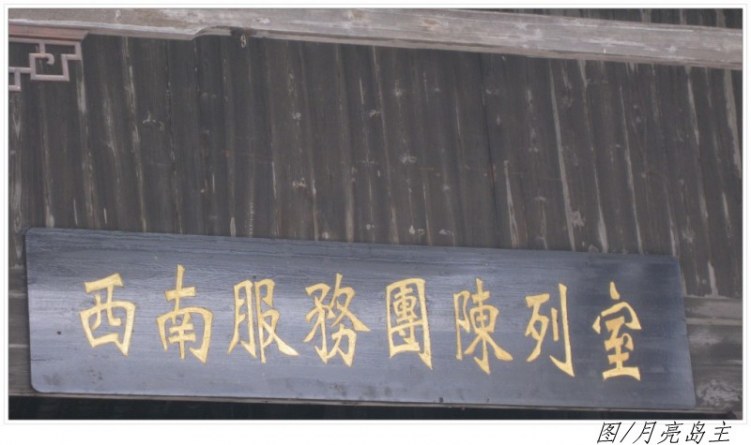 西南服務團陳列室
图/月亮岛主